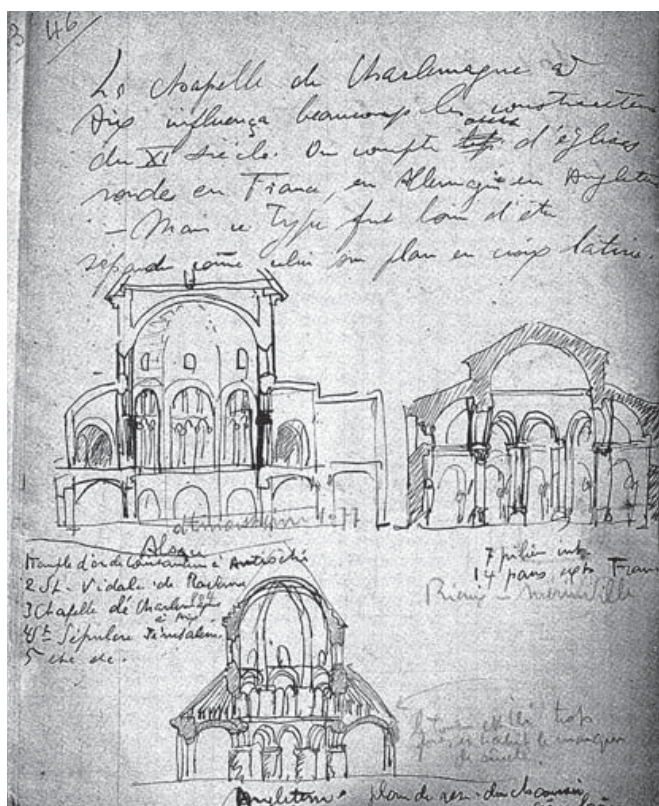 3 46
La chapelle de Charlemagne à
Aix influença beaucoup les constructeurs
du XI siècle. On compte assez d'églises
rondes en France, en Allemagne en Angleterre
– Mais ce type fut loin d'être
répandu come celui sur plan en croix latine.
Alsace
1 temple d'or de Constantin à Antioche
2 St. Vidale de Ravenne
3 Chapelle de Charlemagne
à Aix
4 St Sépulcre Jérusalem.
5 etc etc.
7 piliers int
14 pans France
Rieux Merinville
trop
le manque
Angleterre plan de rez-de-chaussée